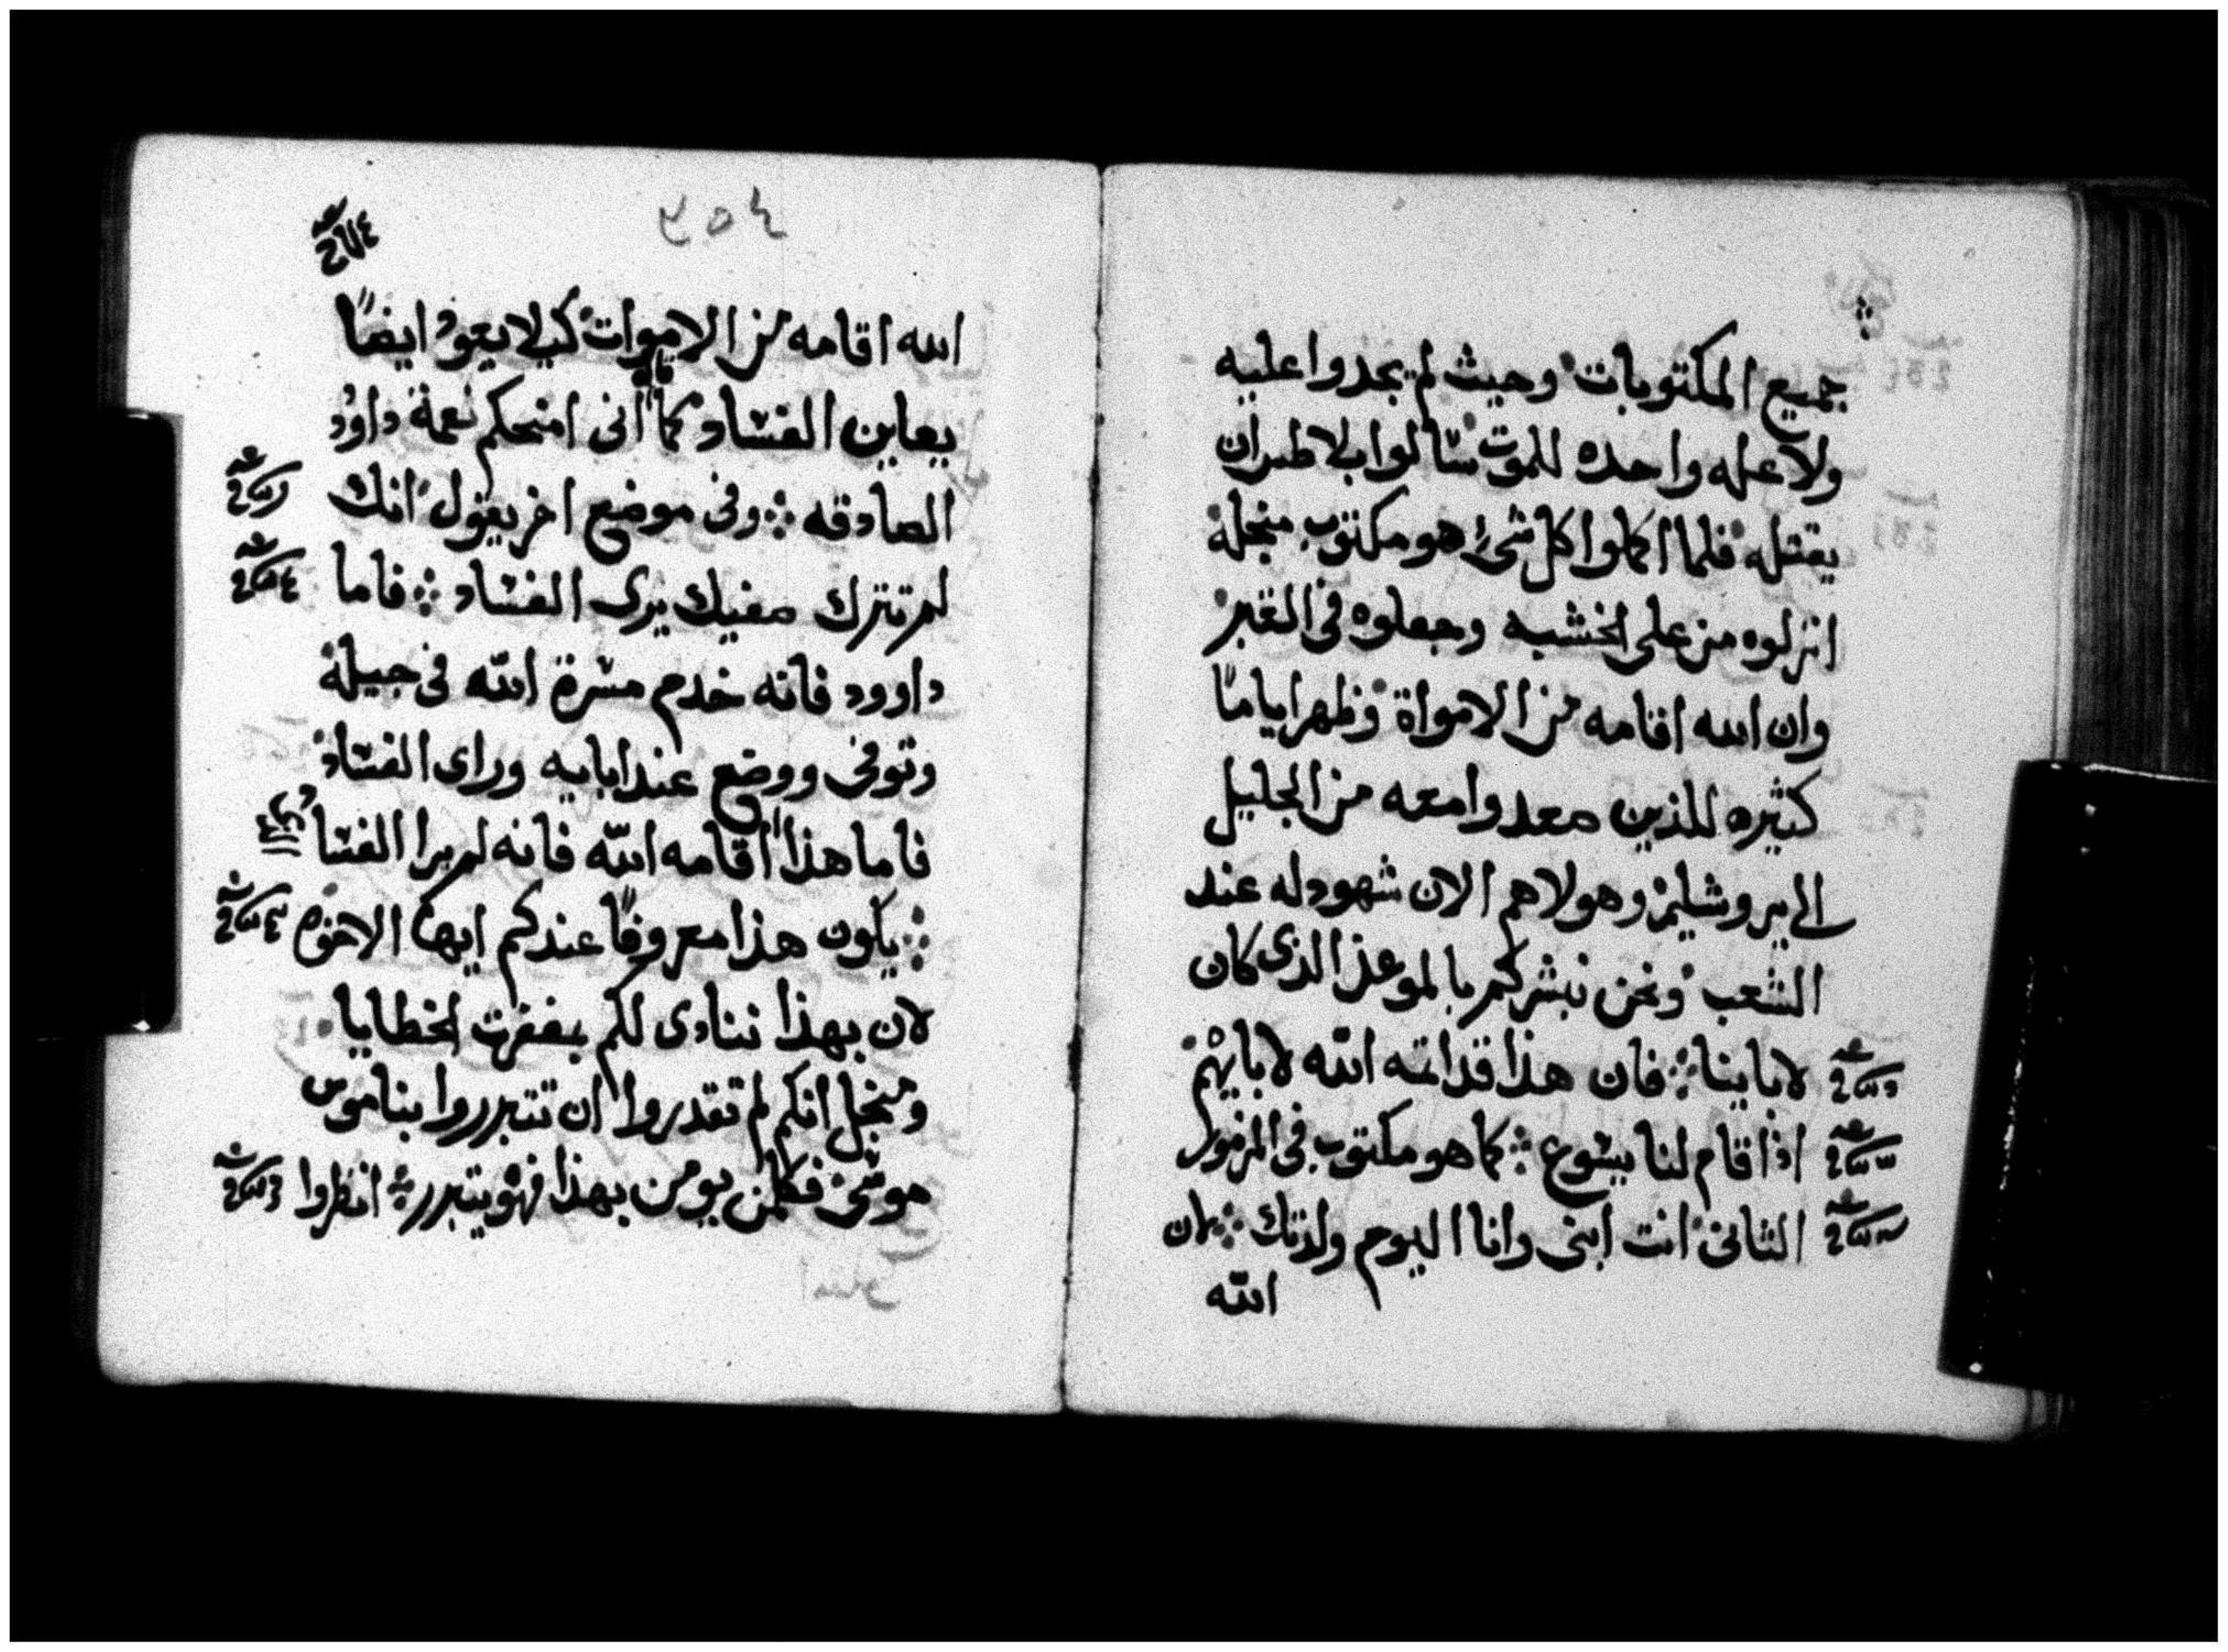 جميع المكتوبات وحيث لم يجدوا عليه
ولا عله واحده للموت سالوا بلاطس ان
يقتله فلما اكملوا كل شىء هو مكتوب منجلة
انزلوه من على الخشبه وجعلوه فى القبر
وان الله اقامه من الامواة وظهر اياما
كثيره للذين صعدوا معه من الجليل
الى يروشليم وهولاهم الان شهود له عند
الشعب ونحن نبشركم بالموعد الذى كان
لاباينا فان هذا قد اتمه الله لابايهم
اذ اقام لنا يسوع كما هو مكتوب فى المزمور
الثانى انت ابنى وانا اليوم ولدتك لان
الله
٤٥٢
الله اقامه من الاموات كيلا يعود ايضًا
يعاين الفساد كما قال انى امنحكم نعمة داوود
الصادقه وفى موضع اخر يقول انك
لم تترك صفيك يرى الفساد فاما
داوود فانه خدم مسرة الله فى جيله
وتوفى ووضع عند ابايه وراى الفساد
فاما هذا اقامه الله فانه لم يرا الفساد
يكون هذا معروفًا عندكم ايها الاخوه
لان بهذا ننادى لكم بغفرت الخطايا
ومنجل انكم لم تقدروا ان تتبرروا بناموس
موسى فكلمن يومن بهذا فهو يتبرر انظروا